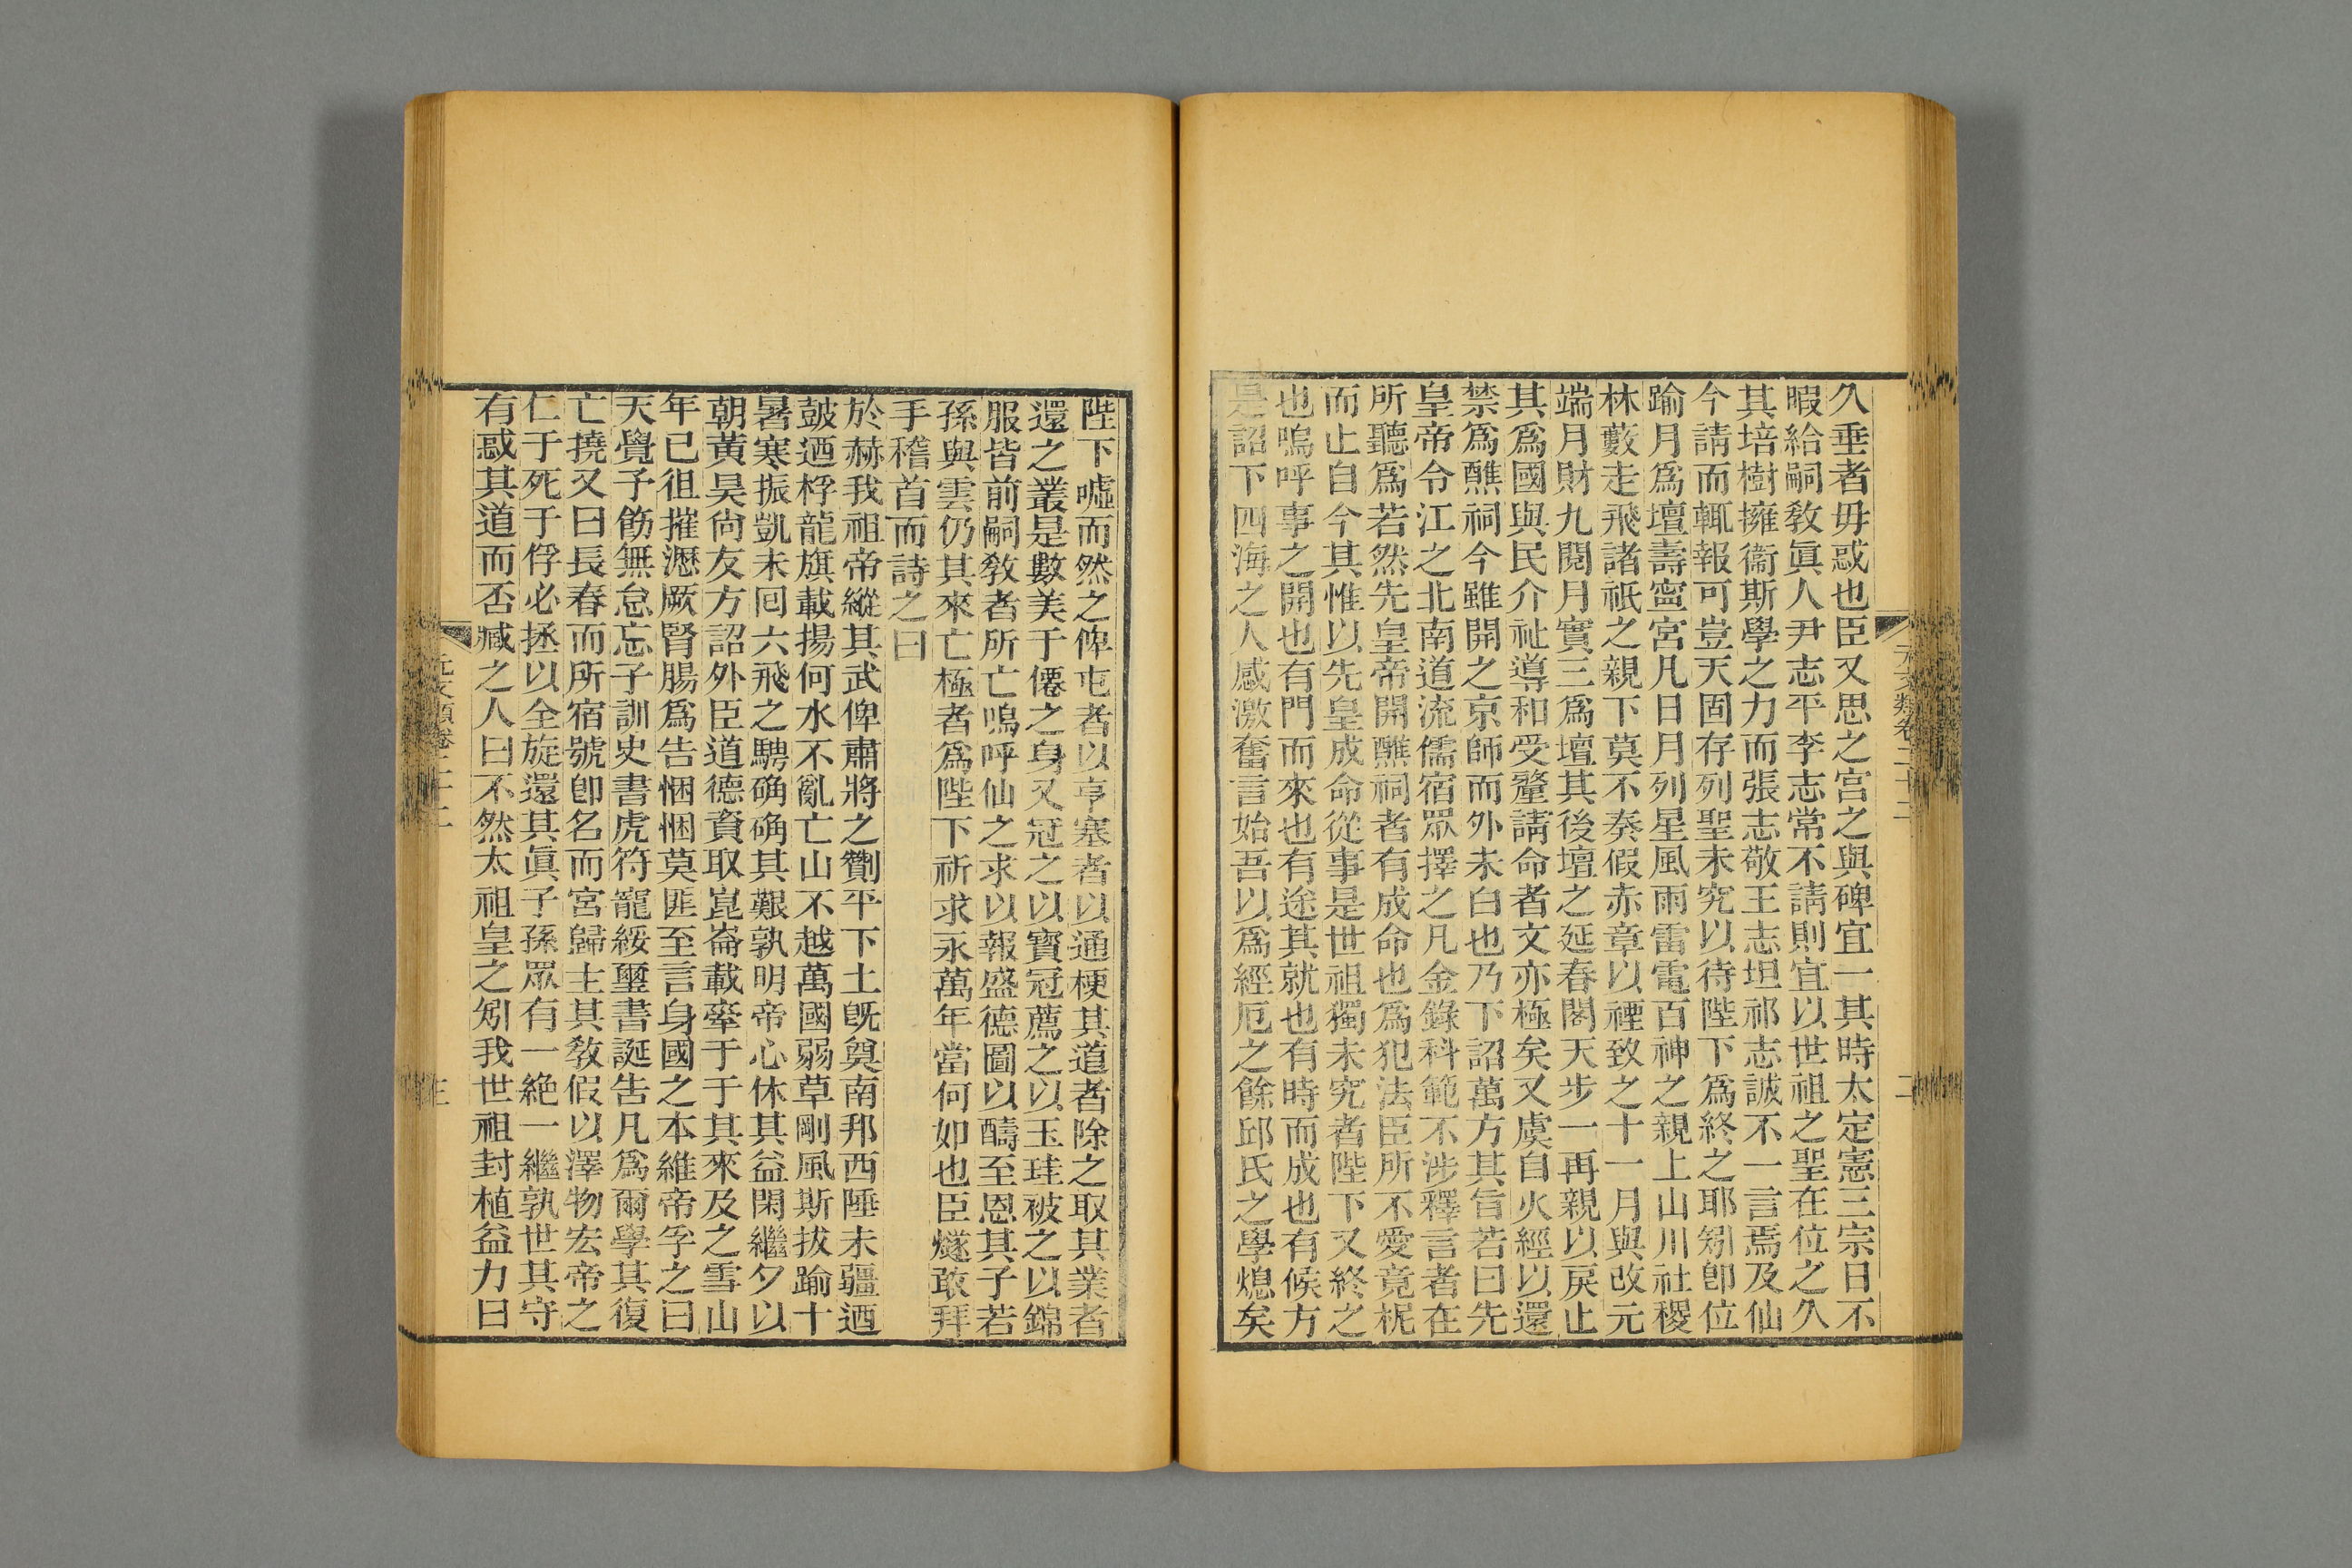 久垂者毋惑也臣又思之宮之與碑宜一其時太定憲三宗日不
暇給嗣敎眞人尹志平李志常不請則宜以世祖之聖在位之久
其培樹擁衞斯學之力而張志敬王志坦祁志誠不一言焉及仙
今請而輒報可豈天固存列聖未究以待陛下爲終之耶矧卽位
踰月爲壇壽寧宮凡日月列星風雨雷電百神之親上山川社稷
林藪走飛諸祇之親下莫不奏假赤章以禋致之十一月與改元
端月財九閱月實三爲壇其後壇之延春閣天步一再親以戾止
其爲國與民介祉導和受釐請命者文亦極矣又虞自火經以還
禁爲醮祠今雖開之京師而外未白也乃下詔萬方其旨若曰先
皇帝令江之北南道流儒宿眾擇之凡金錄科範不涉釋言者在
所聽爲若然先皇帝開醮祠者有成命也爲犯法臣所不愛竟柅
而止自今其惟以先皇成命從事是世祖獨未究者陛下又終之
也嗚呼事之開也有門而來也有途其就也有時而成也有候方
是詔下四海之人感激奮言始吾以爲經厄之餘邱氏之學熄矣
元文類卷二十二
二
陛下噓而然之俾屯者以亨塞者以通梗其道者除之取其業者
還之叢是數美于僊之身又冠之以寶冠薦之以玉珪被之以錦
服皆前嗣敎者所亡嗚呼仙之求以報盛德圖以醻至恩其子若
孫與雲仍其來亡極者爲陛下祈求永萬年當何如也臣燧敢拜
手稽首而詩之曰
於赫我祖帝縱其武俾肅將之劗平下土旣奠南邦西陲未疆迺
皷迺桴龍旗載揚何水不亂亡山不越萬國弱草剛風斯拔踰十
暑寒振凱未囘六飛之騁确确其艱孰明帝心休其益閑繼夕以
朝黃昊尙友方詔外臣道德資取崑崙載犖于于其來及之雪山
年已徂摧瀝厥腎腸爲告悃悃莫匪至言身國之本維帝孚之曰
天覺予飭無怠忘子訓史書虎符寵綏璽書誕告凡爲爾學其復
亡撓又曰長春而所宿號卽名而宮歸主其敎假以澤物宏帝之
仁于死于俘必拯以全旋還其眞子孫眾有一絶一繼孰世其守
有惑其道而否臧之人曰不然太祖皇之矧我世祖封植益力曰
元文類卷二十二